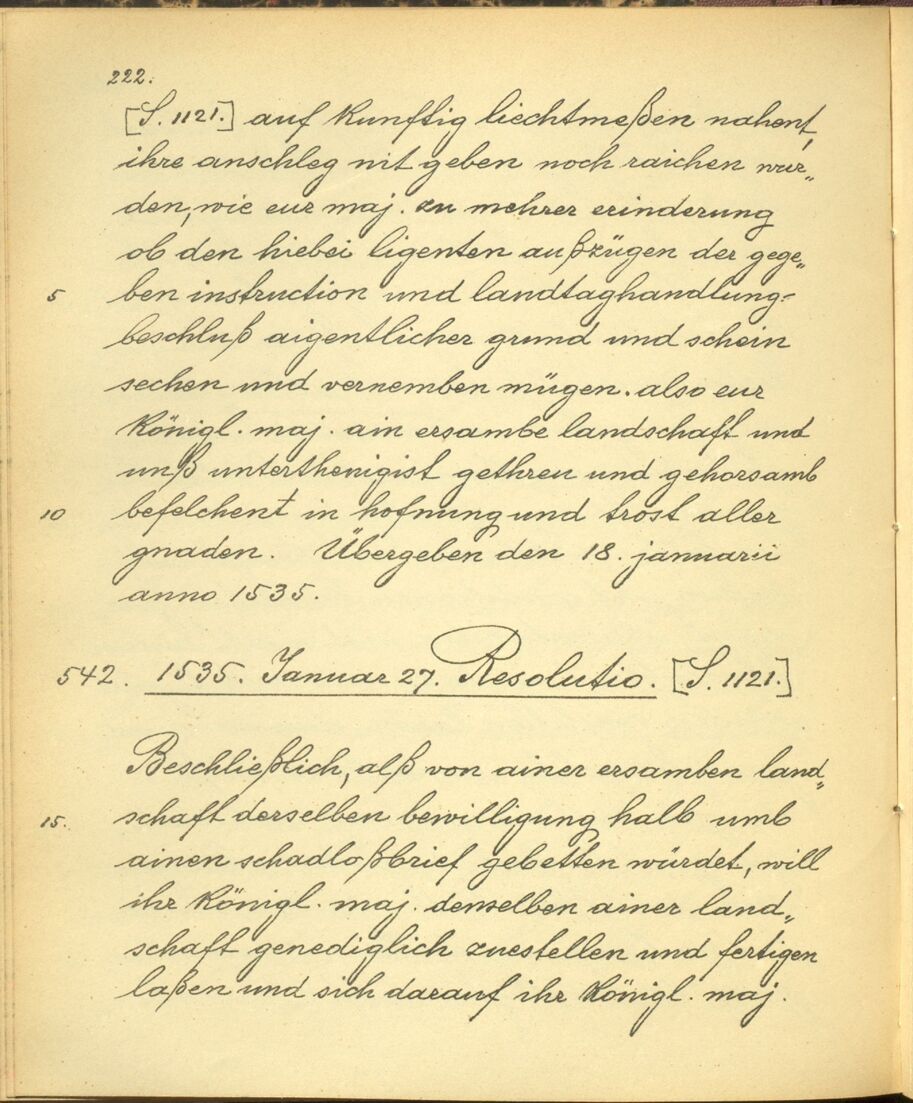 222.
[S. 1121.] auf kunftig liechtmeßen nahent,
ihre anschleg nit geben noch raichen wur„
den, wie eur maj. zu mehrer erinderung
ob den hiebei ligenten außzügen der gege„
5 ben instruction und landtaghandlung-
beschluß aigentlicher grund und schein
sechen und vernemben mügen. also eur
königl. maj. ain ersambe landschaft und
unß unterthenigist gethreu und gehorsamb
10 befelchent in hofnung und trost aller
gnaden. Übergeben den 18. januarii
anno 1535.
542. 1535. Januar 27. Resolutio. [S. 1121.]
Beschließlich, alß von ainer ersamben land„
15. schaft derselben bewilligung halb umb
ainen schadloßbrief gebetten würdet, will
ihr königl. maj. denselben ainer land„
schaft genediglich zuestellen und fertigen
laßen und sich darauf ihr königl. maj.